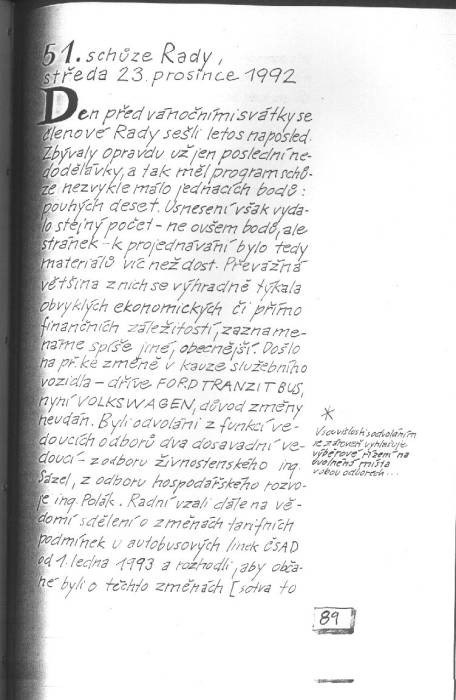 51. schůze Rady,
středa 23. prosince 1992
Den před vánočními svátky se
členové Rady sešli letos naposled.
Zbývaly opravdu už jen poslední ne-
dodělávky, a tak měl program schů-
ze nezvykle málo jednacích bodů:
pouhých deset. Usnesení však vyda-
lo stejný počet - ne ovšem bodů, ale
stránek - k projednávání bylo tedy
materiálů víc než dost. Převážná
většina z nich se výhradně týkala
obvyklých ekonomických či přímo
finančních záležitostí, zazname-
náme spíše jiné, obecnější. Došlo
na př. ke změně v kauze služebního
vozidla - dříve FORD TRANZIT BUS,
nyní VOLKSWAGEN, důvod změny
neudán. Byli odvoláni z funkcí ve-
doucích odborů dva dosavadní ve-
doucí - z odboru živnostenského ing.
Sázel, z odboru hospodářského rozvo-
je ing. Polák. Radní vzali dále na vě-
domí sdělení o změnách tarifních
podmínek u autobusových linek ČSAD
od 1. ledna 1993 a rozhodli, aby obča-
né byli o těchto změnách [sotva to
*
V souvislosti s odvoláním
se zároveň vyhlašuje
výběrové řízení na
uvolněná místa
v obou odborech...
89